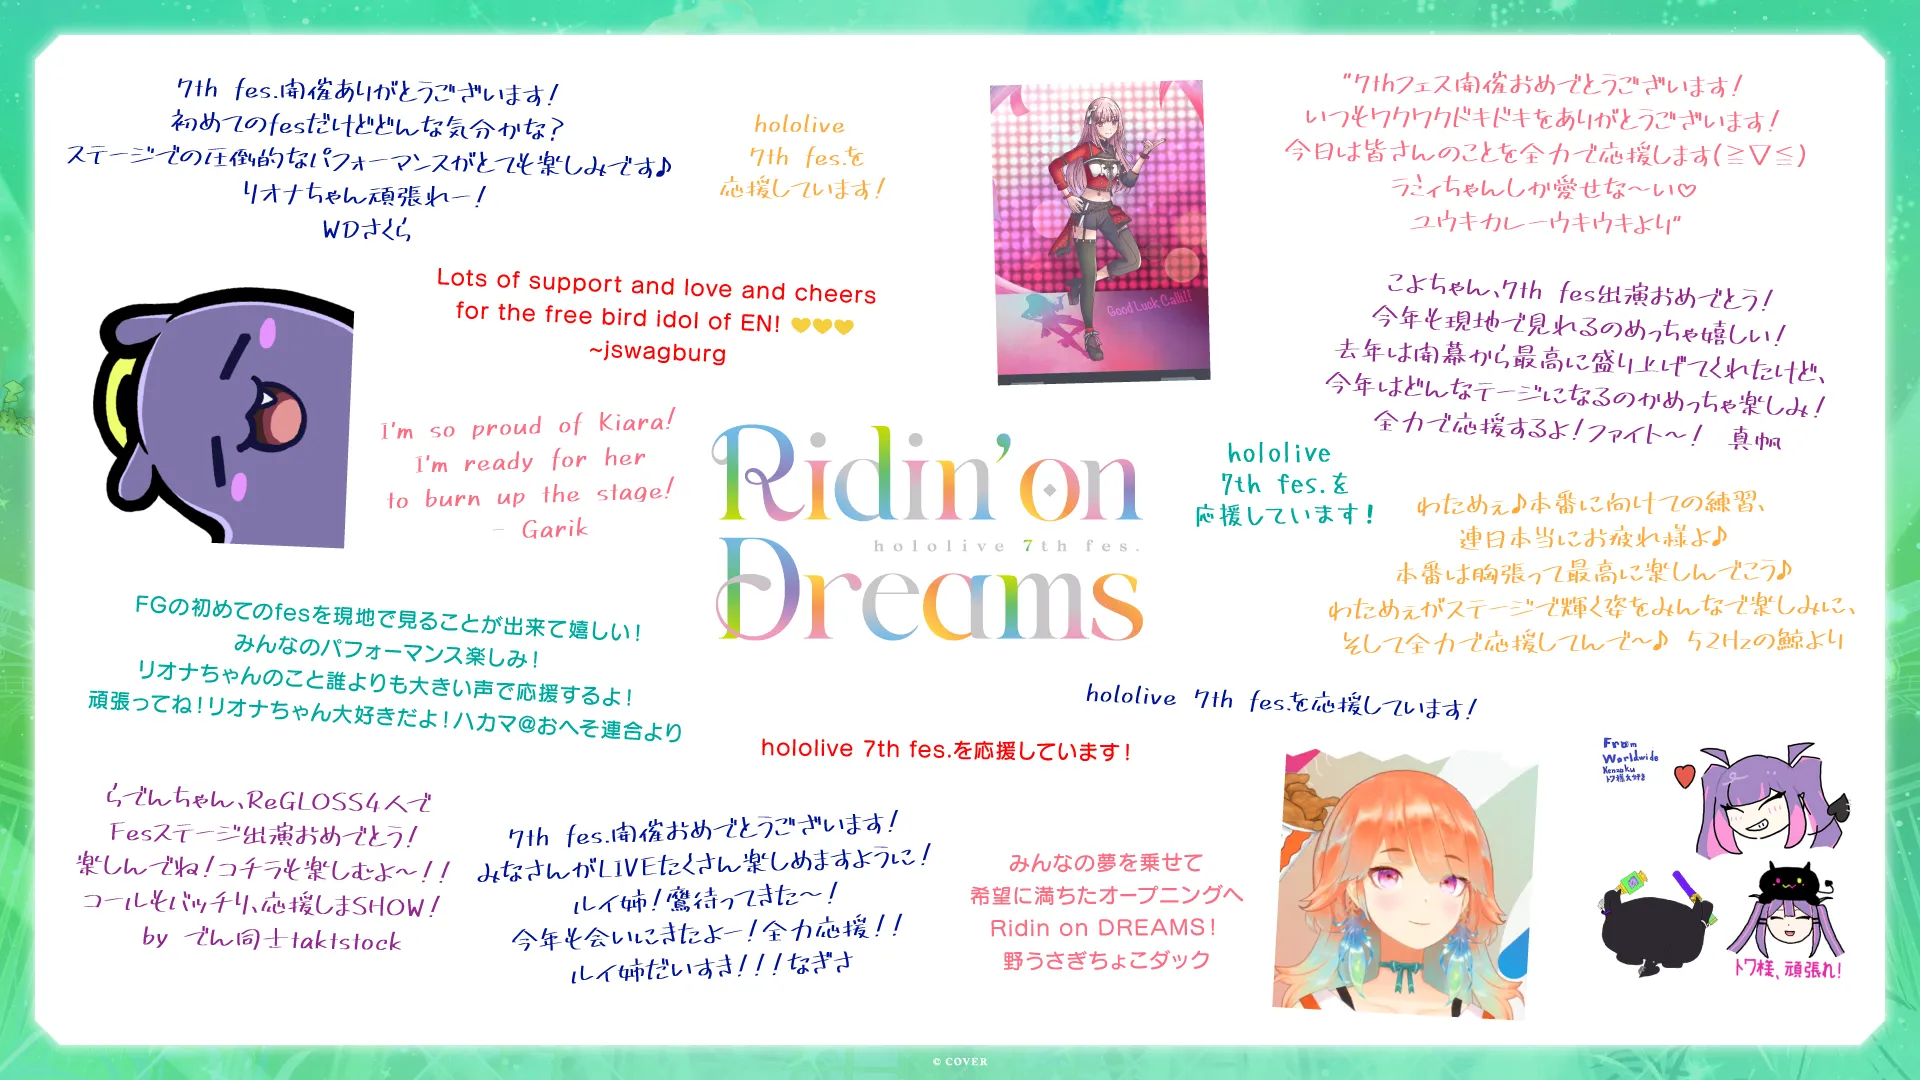 7th fes.開催ありがとうございます！
初めてのfesだけどどんな気分かな？
ステージでの圧倒的なパフォーマンスがとても楽しみです♪
リオナちゃん頑張れー！
WDさくら
hololive
7th fes.を
応援しています！
Good Luck Calli!!
"7thフェス開催おめでとうございます！
いつもワクワクドキドキをありがとうございます！
今日は皆さんのことを全力で応援します(≧▽≦)
ラミィちゃんしか愛せな〜い♡
ユウキカレーウキウキより"
Lots of support and love and cheers
for the free bird idol of EN! 💛💛💛
~jswagburg
こよちゃん、7th fes出演おめでとう！
今年も現地で見れるのめっちゃ嬉しい！
去年は開幕から最高に盛り上げてくれたけど、
今年はどんなテージになるのかめっちゃ楽しみ！
全力で応援するよ！ファイト〜！ 真帆
I'm so proud of Kiara!
I'm ready for her
to burn up the stage!
- Garik
Ridin' on
hololive 7th fes.
Dreams
hololive
7th fes.を
応援しています！
わためぇ♪本番に向けての練習、
連日本当にお疲れ様よ♪
本番は胸張って最高に楽しんでこう♪
わためぇがステージで輝く姿をみんなで楽しみに、
そして全力で応援してんで〜♪ 52Hzの鯨より
FGの初めてのfesを現地で見ることが出来て嬉しい！
みんなのパフォーマンス楽しみ！
リオナちゃんのこと誰よりも大きい声で応援するよ！
頑張ってね！リオナちゃん大好きだよ！ハカマ@おへそ連合より
hololive 7th fes.を応援しています！
hololive 7th fes.を応援しています！
らでんちゃん、ReGLOSS4人で
Fesステージ出演おめでとう！
楽しんでね！コチラも楽しむよ〜！！
コールもバッチリ、応援しまSHOW！
by でん同士taktstock
7th fes.開催おめでとうございます！
みなさんがLIVEたくさん楽しめますように！
ルイ姉！鷹待ってきた〜！
今年も会いにきたよー！全力応援！！
ルイ姉だいすき！！！なぎさ
みんなの夢を乗せて
希望に満ちたオープニングへ
Ridin on DREAMS！
野うさぎちょこダック
From
Worldwide
Kenzoku
トワ様、頑張れ！
© COVER